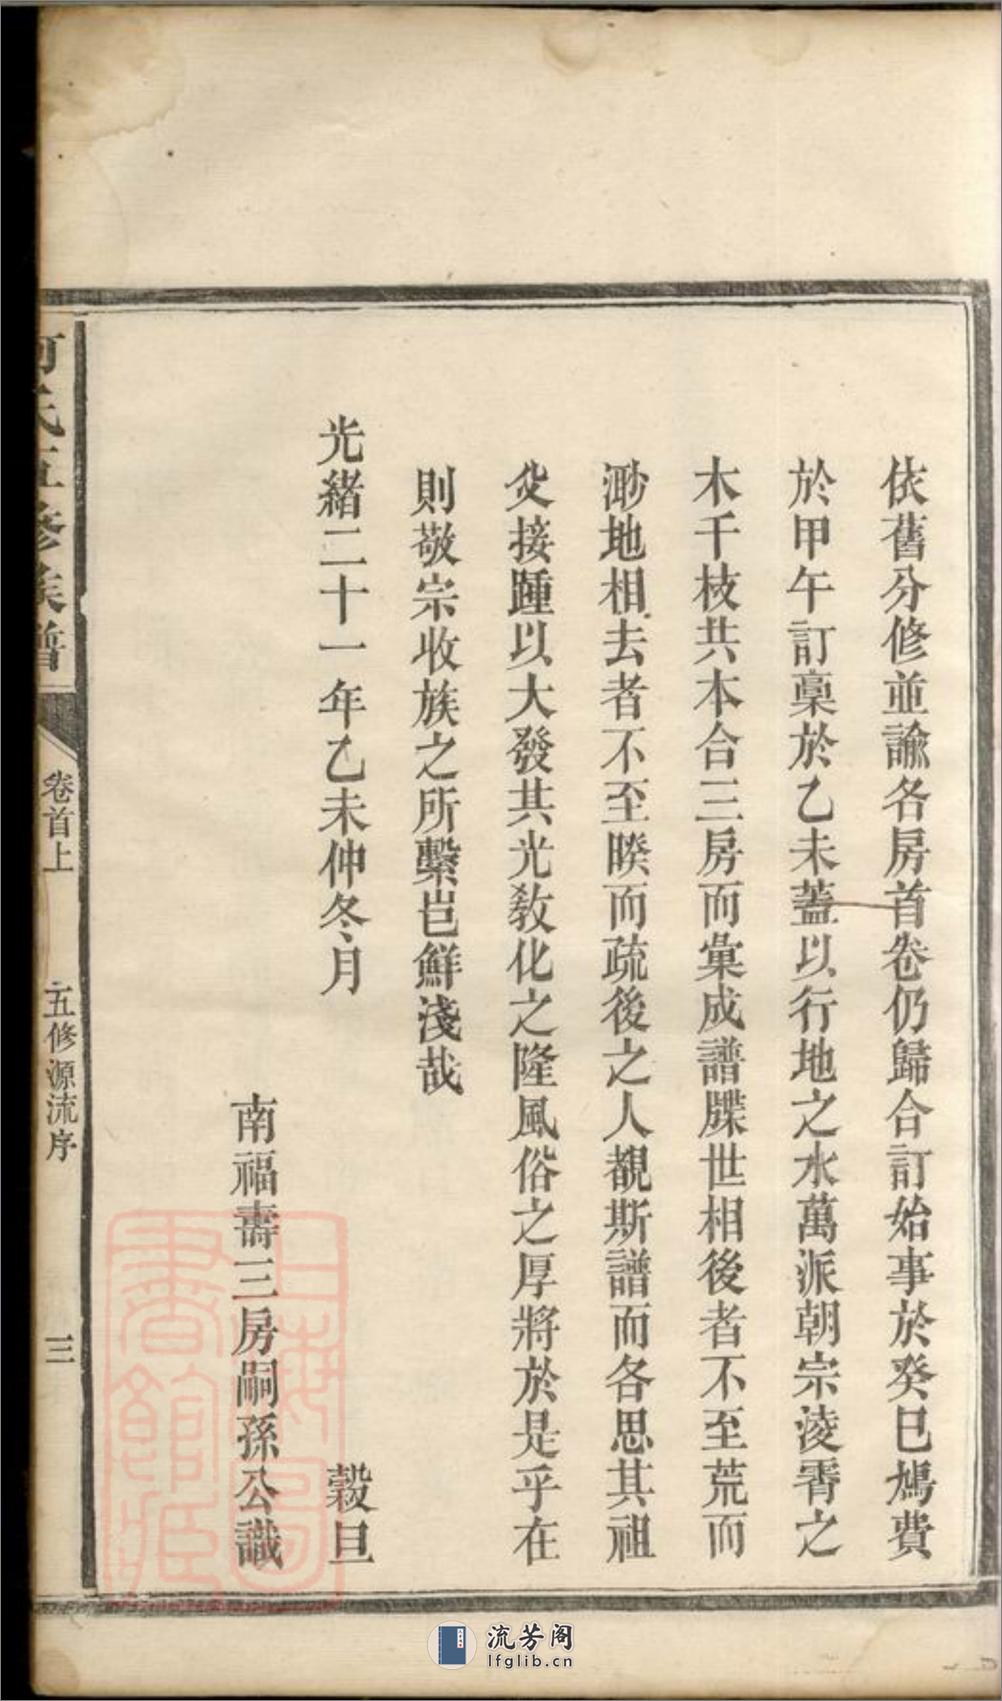 依舊分修並諭各房首卷仍歸合訂始事於癸巳鳩費
於甲午訂稾於乙未蓋以行地之水萬派朝宗淩霄之
木千枝共本合三房而彙成譜牒世相後者不至荒而
渺地相去者不至睽而疏後之人覩斯譜而各思其祖
父接踵以大發其光敎化之隆風俗之厚將於是乎在
則敬宗收族之所繫豈鮮淺哉
光緒二十一年乙未仲冬月 穀旦
南福壽三房嗣孫公識
氏五修族譜 卷首上 五修源流序 三
上海圖書館藏
流芳阁
lfglib.cn